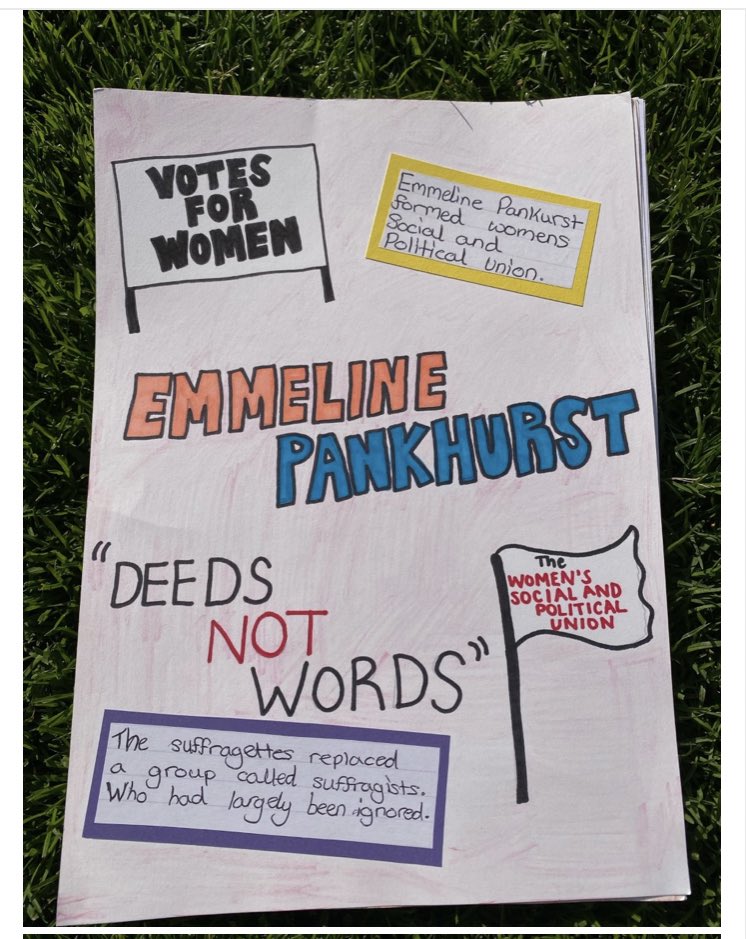 VOTES
FOR
WOMEN
Emmeline Pankurst
formed womens
Social and
Political Union.
EMMELINE
PANKHURST
"DEEDS
NOT
WORDS"
The
WOMEN'S
SOCIAL AND
POLITICAL
UNION
The suffragettes replaced
a group called suffragists.
Who had largely been ignored.